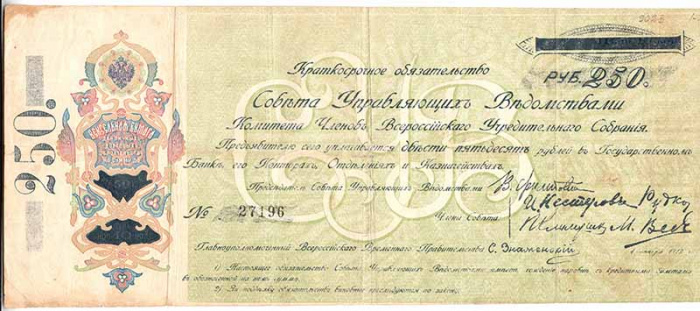 250.
РУБ. 250.
Краткосрочное обязательство
Совѣта Управляющихъ Вѣдомствами
Комитета Членовъ Всероссійскаго Учредительнаго Собранія.
Предъявителю сего уплачивается двѣсти пятьдесятъ рублей въ Государственномъ
Банкѣ, его Конторахъ, Отдѣленіяхъ и Казначействахъ.
Предсѣдатель Совѣта Управляющихъ Вѣдомствами
№ 27196
Члены Совѣта.
Главноуполномоченный Всероссійскаго Временнаго Правительства С. Знаменскій
1) Настоящее обязательство Совѣта Управляющихъ Вѣдомствами имѣетъ хожденіе наравнѣ съ кредитными билетами
2) За поддѣлку обязательства виновные преслѣдуются по закону.